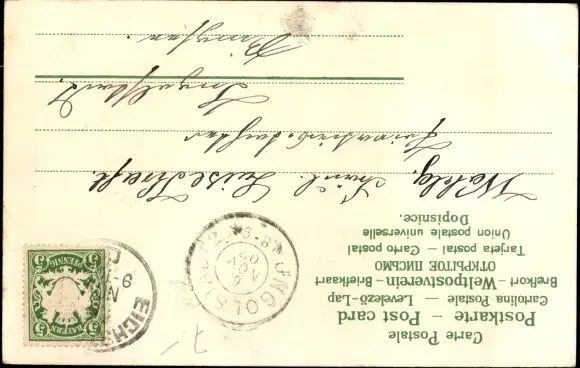 Carte Postale
Postkarte – Post card
Cartolina Postale – Levelező-Lap
Brefkort – Weltpostverein – Briefkaart
ОТКРЫТОЕ ПИСЬМО
Tarjeta postal – Carto postal
Union postale universelle
Dopisnice.
Fräul. Luise
Ingolstadt
INGOLSTADT 2
6
NOV
EICH
5 BAYERN 5
5 PFENNIG 5